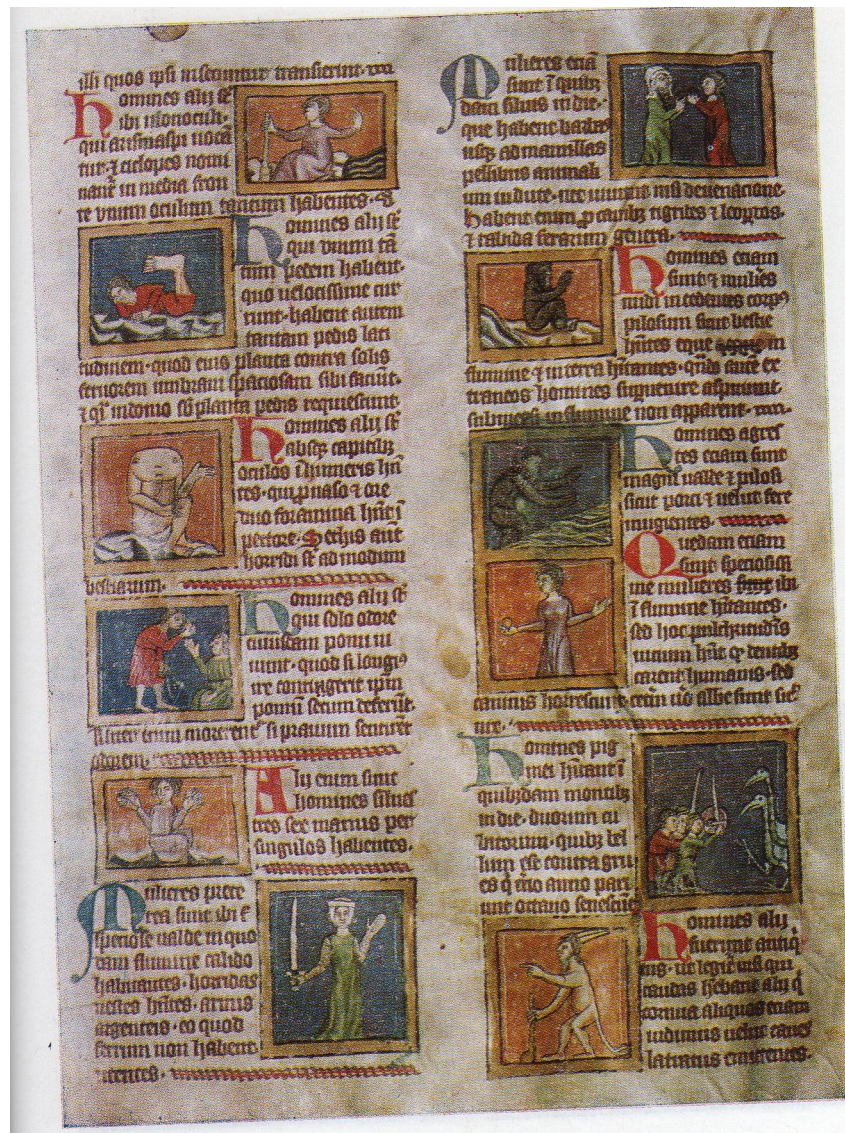 illi quos ipsi insecuntur transierint.
Homines alij sūt
ibi monoculi·
qui arismaspi uocā
tur· ⁊ ciclopes nomi
nant̄ in media fron
te vnum oculum tantum habentes·
Homines alij sūt
qui vnum tā
tum pedem habent·
quo uelocissime cur
runt· habent autem
tantam pedis lati
tudinem· quod eius planta contra solis
feruorem umbram spaciosam sibi faciūt·
⁊ planta pedis requiescunt·
Homines alij sūt
absq; capitib;
oculos ī humeris hn̄
tes· qui ꝓ naso ⁊ ore
duo foramina hn̄t ī
pectore· Setas aūt
horridi sūt ad modum
bestiarum·
Homines alij sūt
qui solo odore
cuiusdam pomi ui
uunt· quod si longiꝰ
ire contigerit ipm̄
pomū secum deferūt·
Aliter enim morerent̄ si prauum sentirēt
odorem·
Alij enim sunt
homines silues
tres sex manus per
singulos habentes·
Mulieres prete
rea sunt ibi
speciose ualde in quo
dam flumine calido
habitantes· horridas
uestes hn̄tes· armis
argenteis· eo quod
ferrum non habent
utentes·
Mulieres eciā
sunt ī quibꝰ
dam siluis indie·
que habent barbas
usq; ad mamillas
pellibus animali
um indute· nec uiuunt nisi de uenacione·
Habent enim ꝓ canibꝰ tigrides ⁊ leopardos·
⁊ rabida ferarum genera·
Homines eciam
sunt ⁊ mulies
nudi incedentes corpꝰ
pilosum sicut bestie
hn̄tes eque in
flumine ⁊ in terra hītantes· qn̄do aūt ex
traneos homines
submersi in flumine non apparent·
Homines agres
tes eciam sunt
magni ualde ⁊ pilosi
sicut porci ⁊ uelut fere
mugientes·
Quedam eciam
sunt speciosissi
me mulieres ibi
ī flumine hītantes·
sed hoc pulchritudīs
unum hn̄t qꝫ dentibꝫ
carent humanis· sed
caninis
Homines pig
mei hītant ī
quibꝰdam montibꝫ
indie· duorum cu
bitorum· quibꝫ bel
lum est contra gru
es q̄ tercio anno pari
unt octauo senescūt
Homines alij
fuerunt antiqͥ
tus· ut legitur qui
caudas habebant alij
cornua aliquos eciam
inuenimus uelut canes
latratus emittentes·